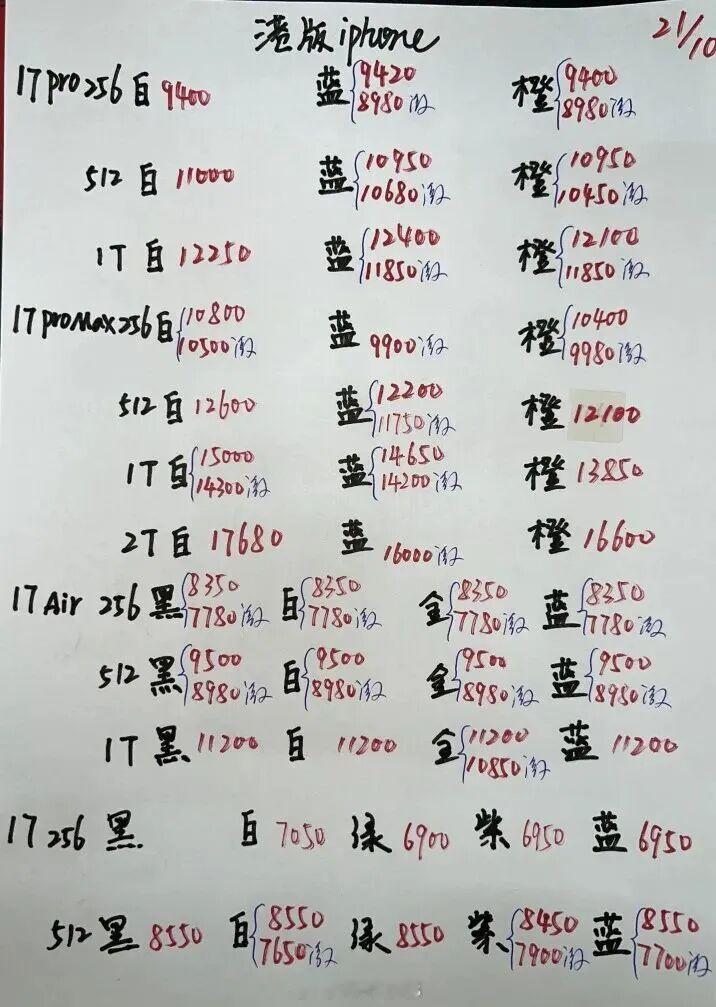 港版iphone
21/10
17pro256 白 9400 蓝{9420 橙{9400
8980激 8980激
512 白 11000 蓝{10950 橙{10950
10680激 10450激
1T 白 12250 蓝{12400 橙{12100
11850激 11850激
17proMax256白{10800 蓝 9900激 橙{10400
10500激 9980激
512白 12600 蓝{12200 橙 12100
11750激
1T白{15000 蓝{14650 橙 13850
14300激 14200激
2T白 17680 蓝 16000激 橙 16600
17Air 256黑{8350 白{8350 金{8350 蓝{8350
7780激 7780激 7780激 7780激
512黑{9500 白{9500 金{9500 蓝{9500
8980激 8980激 8980激 8980激
1T黑 11200 白 11200 金{11200 蓝 11200
10850激
17 256 黑 白 7050 绿 6900 紫 6950 蓝 6950
512黑 8550 白{8550 绿 8550 紫{8450 蓝{8550
7650激 7900激 7700激